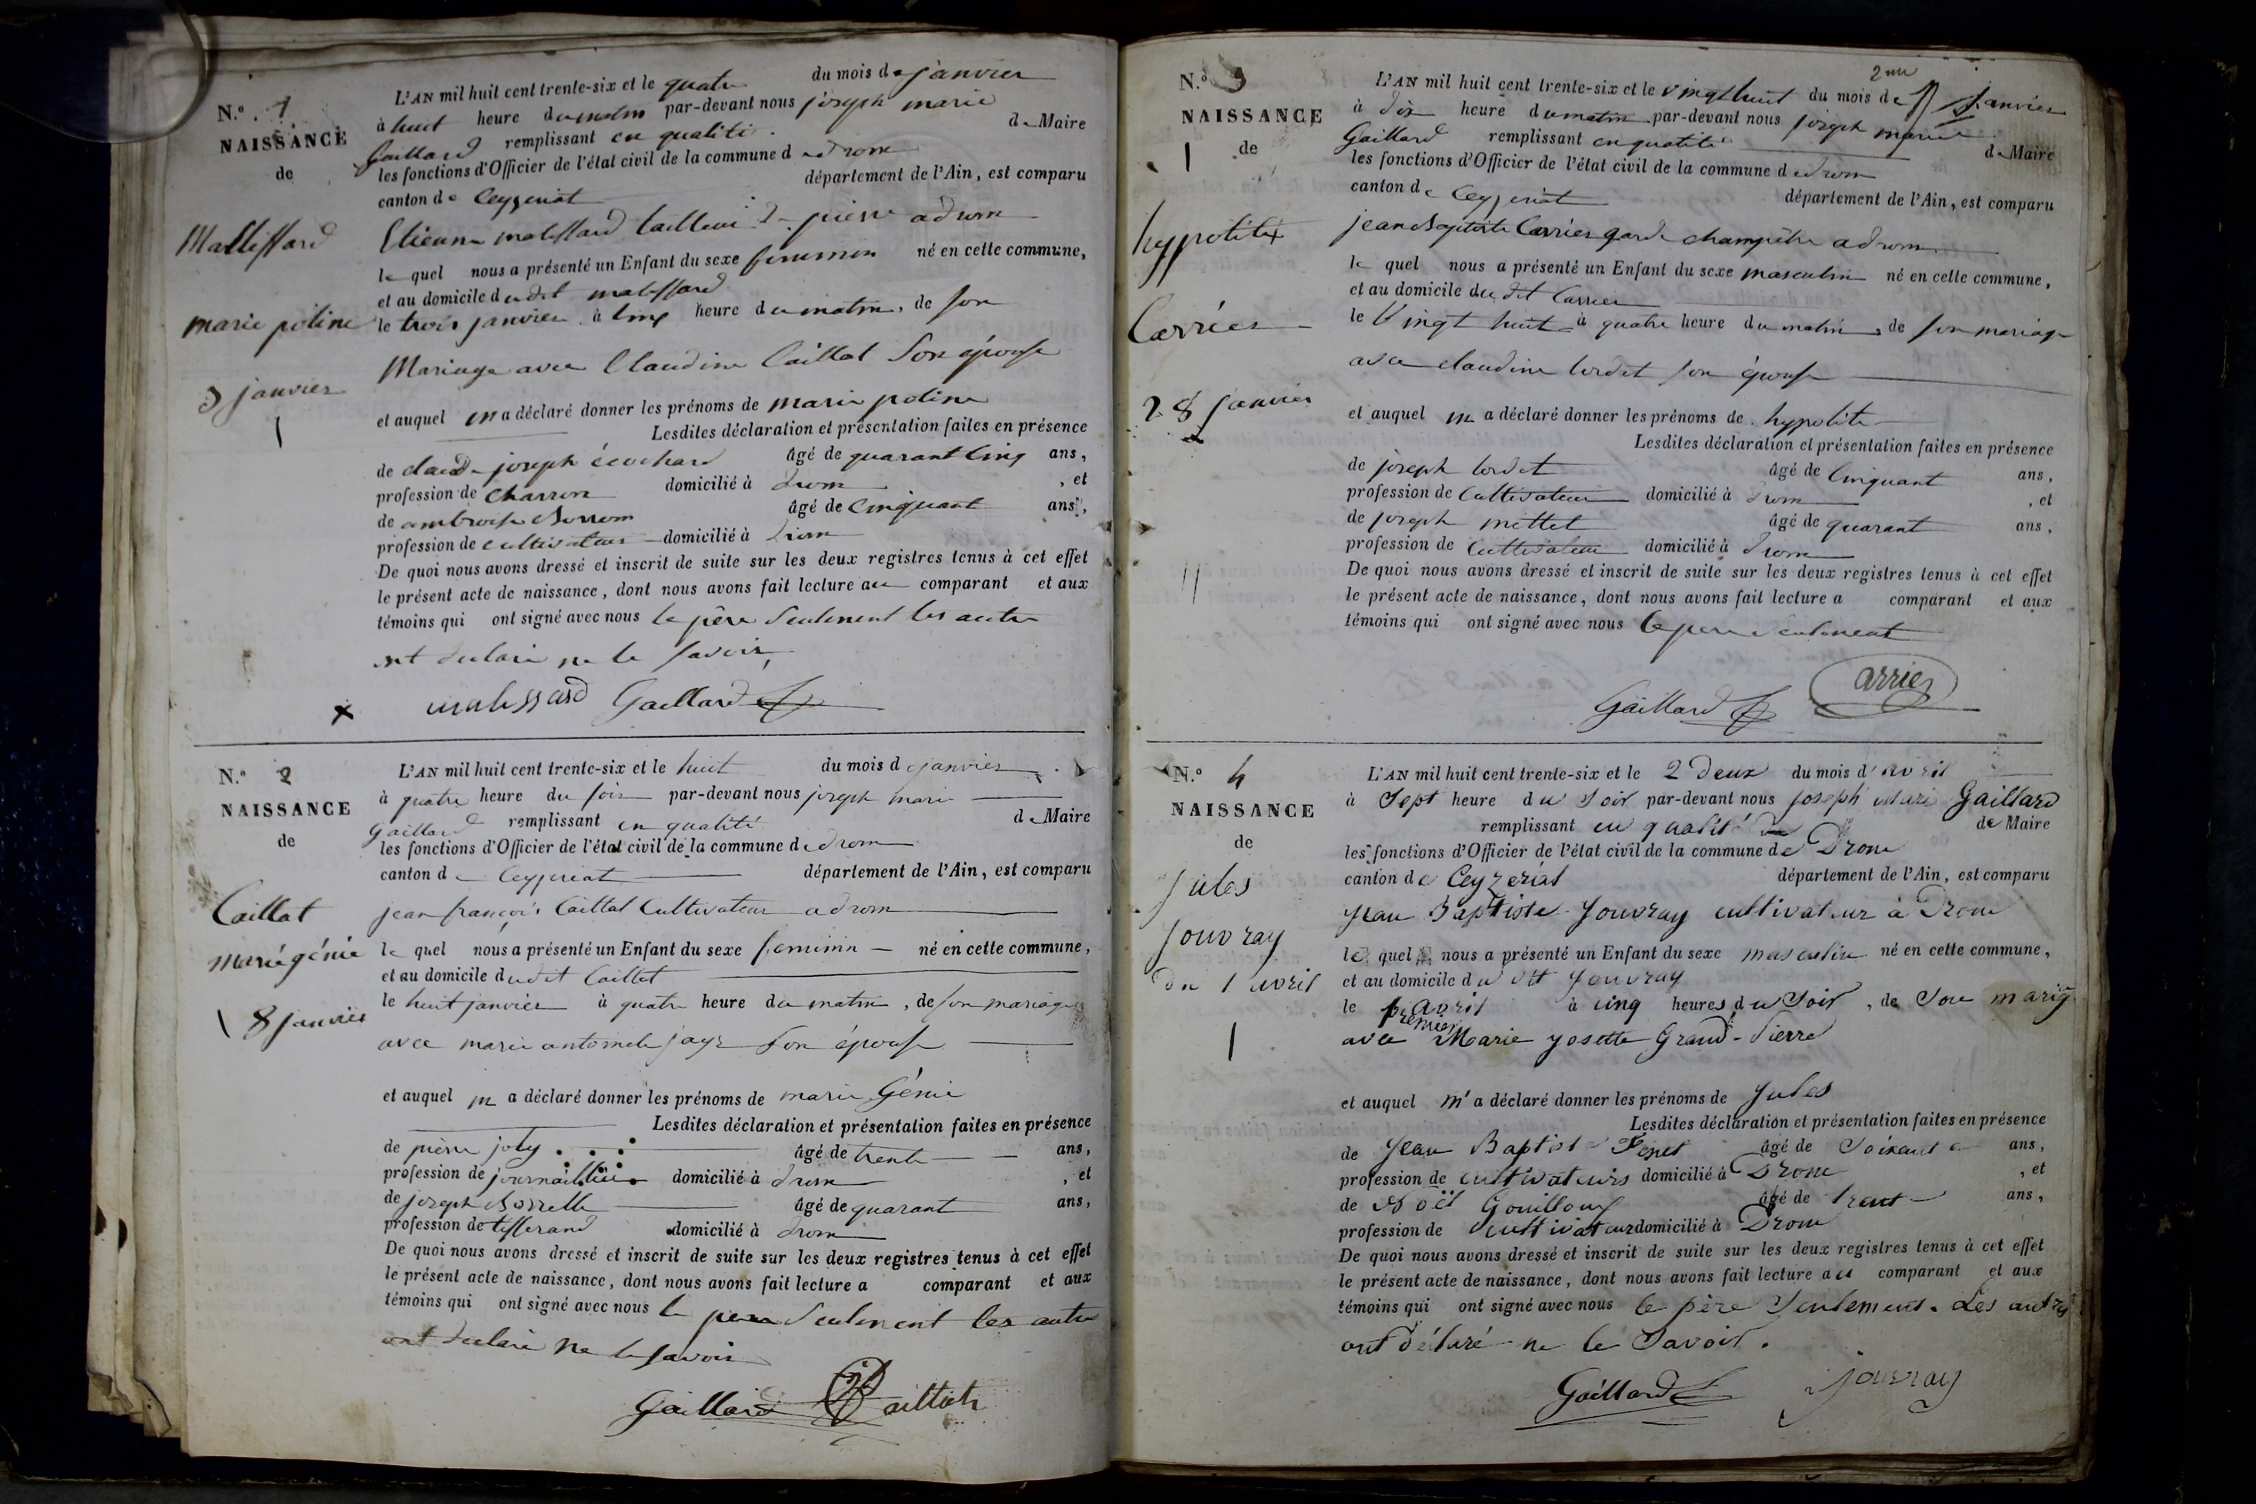 N.º 1
NAISSANCE
de
Mallessard
marie poline
3 janvier
L'AN mil huit cent trente-six et le quatre du mois de janvier
à huit heure du matin par-devant nous joseph marie
Gaillard remplissant en qualité de Maire
les fonctions d'Officier de l'état civil de la commune de drom
canton de Ceyzeriat département de l'Ain, est comparu
Etienne malessard tailleur de pierre a drom
le quel nous a présenté un Enfant du sexe femenen né en cette commune,
et au domicile dudit malessard
le trois janvier à cinq heure du matin, de son
Mariage avec Claudine Caillat son épouse
et auquel m a déclaré donner les prénoms de marie poline
Lesdites déclaration et présentation faites en présence
de claude joseph écochard âgé de quarant cinq ans,
profession de charron domicilié à drom, et
de ambroise Borron âgé de cinquant ans,
profession de cultivateur domicilié à drom
De quoi nous avons dressé et inscrit de suite sur les deux registres tenus à cet effet
le présent acte de naissance, dont nous avons fait lecture au comparant et aux
témoins qui ont signé avec nous le père seulement les autre
ont declaré ne le savoir
malessard Gaillard
N.º 2
NAISSANCE
de
Caillat
marie génie
8 janvier
L'AN mil huit cent trente-six et le huit du mois de janvier
à quatre heure du soir par-devant nous joseph marie
Gaillard remplissant en qualité de Maire
les fonctions d'Officier de l'état civil de la commune de drom
canton de Ceyzeriat département de l'Ain, est comparu
jean françois Caillat Cultivateur a drom
le quel nous a présenté un Enfant du sexe feminin né en cette commune,
et au domicile dudit Caillat
le huit janvier à quatre heure du matin, de son mariage
avec marie antoinete jayr son épouse
et auquel m a déclaré donner les prénoms de marie Génie
Lesdites déclaration et présentation faites en présence
de pierre joly âgé de trente ans,
profession de journaillier domicilié à drom, et
de joseph Borrelle âgé de quarant ans,
profession de tisserand domicilié à drom
De quoi nous avons dressé et inscrit de suite sur les deux registres tenus à cet effet
le présent acte de naissance, dont nous avons fait lecture a comparant et aux
témoins qui ont signé avec nous le pere seulement les autre
ont declaré ne le savoir
Gaillard Caillat
N.º 3
NAISSANCE
de
hyppolite
Carrier
28 janvier
L'AN mil huit cent trente-six et le vingt huit du mois de janvier
à dix heure du matin par-devant nous joseph marie
Gaillard remplissant en qualité de Maire
les fonctions d'Officier de l'état civil de la commune de drom
canton de Ceyzeriat département de l'Ain, est comparu
jean Baptiste Carrier garde champêtre a drom
le quel nous a présenté un Enfant du sexe masculin né en cette commune,
et au domicile dudit Carrier
le Vingt huit à quatre heure du matin, de son mariage
avec claudine cordet son épouse
et auquel m a déclaré donner les prénoms de hyppolite
Lesdites déclaration et présentation faites en présence
de joseph cordet âgé de Cinquant ans,
profession de Cultivateur domicilié à drom, et
de joseph mettet âgé de quarant ans,
profession de Cultivateur domicilié à drom
De quoi nous avons dressé et inscrit de suite sur les deux registres tenus à cet effet
le présent acte de naissance, dont nous avons fait lecture a comparant et aux
témoins qui ont signé avec nous le pere seulement
Gaillard Carrier
N.º 4
NAISSANCE
de
Jules
Jouvray
du 1 avril
L'AN mil huit cent trente-six et le 2 deux du mois d'avril
à Sept heure du Soir par-devant nous Joseph Marie Gaillard
remplissant en qualité de de Maire
les fonctions d'Officier de l'état civil de la commune de Drom
canton de Ceyzeriat département de l'Ain, est comparu
Jean Baptiste Jouvray cultivateur à Drom
le quel nous a présenté un Enfant du sexe masculin né en cette commune,
et au domicile du dit Jouvray
le premier avril à cinq heures du Soir, de Son marig
avec Marie Josette Grand-Pierre
et auquel m'a déclaré donner les prénoms de Jules
Lesdites déclaration et présentation faites en présence
de Jean Baptiste âgé de Soixante ans,
profession de cultivateurs domicilié à Drom, et
de Noël Gouilloux âgé de trent ans,
profession de cultivateur domicilié à Drom
De quoi nous avons dressé et inscrit de suite sur les deux registres tenus à cet effet
le présent acte de naissance, dont nous avons fait lecture au comparant et aux
témoins qui ont signé avec nous le père Seulement. Les autres
ont déclaré ne le Savoir.
Gaillard jouvray